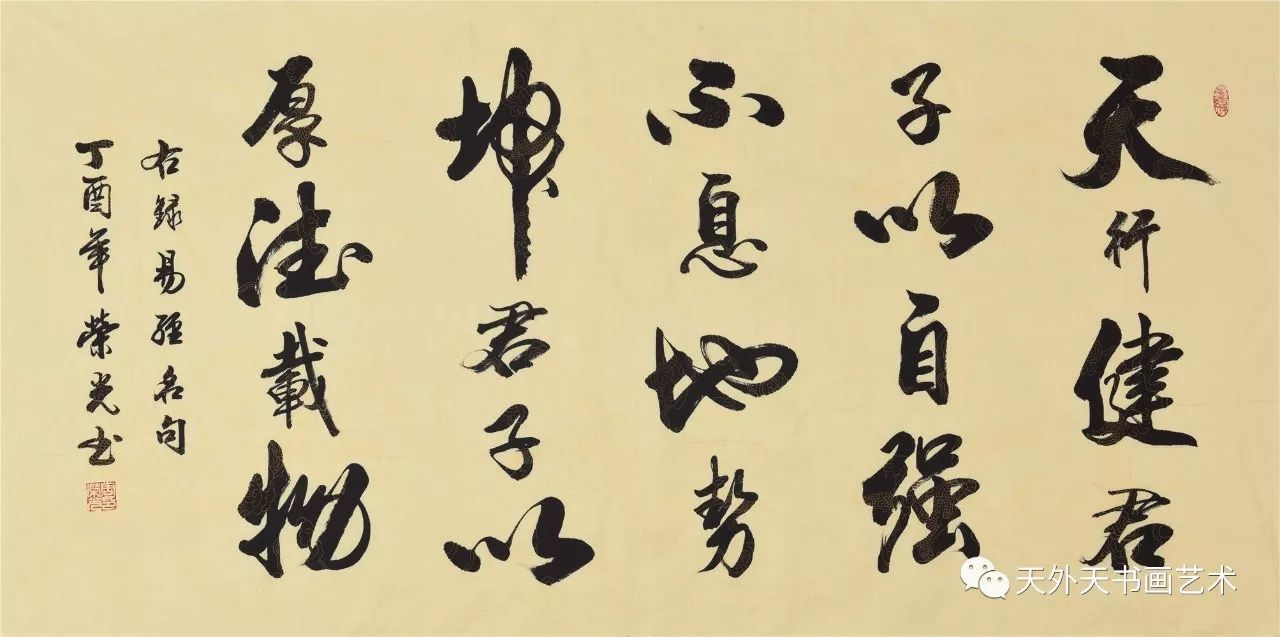 天行健君
子以自强
不息地势
坤君子以
厚德載物
右録易經名句
丁酉年榮光书
天外天书画艺术